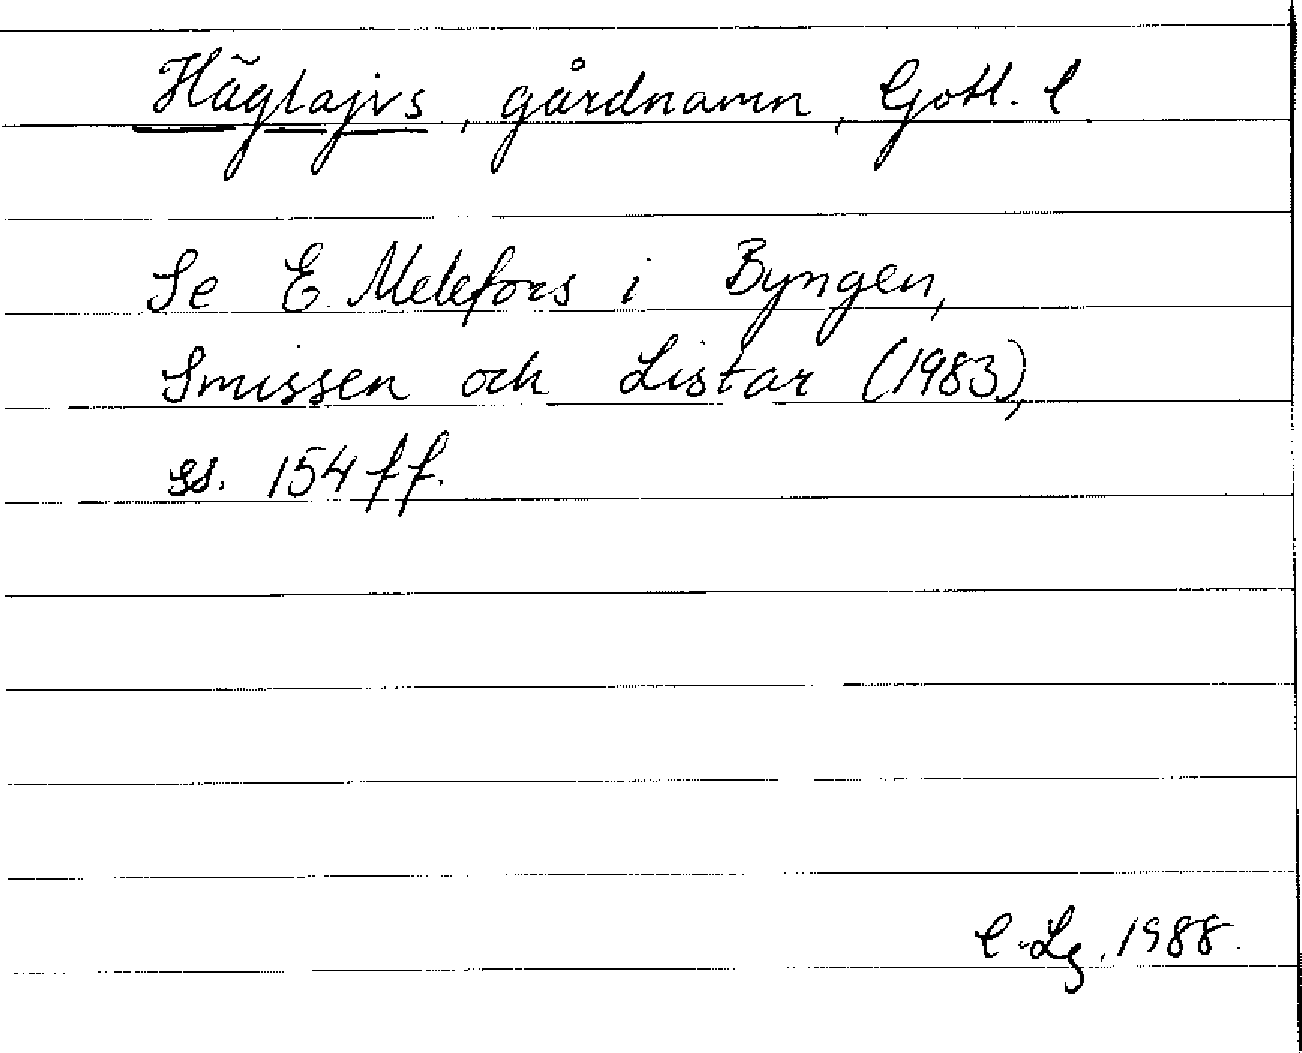 Häglajvs, gårdnamn, Gotl. l
Se E. Melefors i Byngen,
Smissen och Listar (1983),
ss. 154 ff.
C-Lg. 1988.